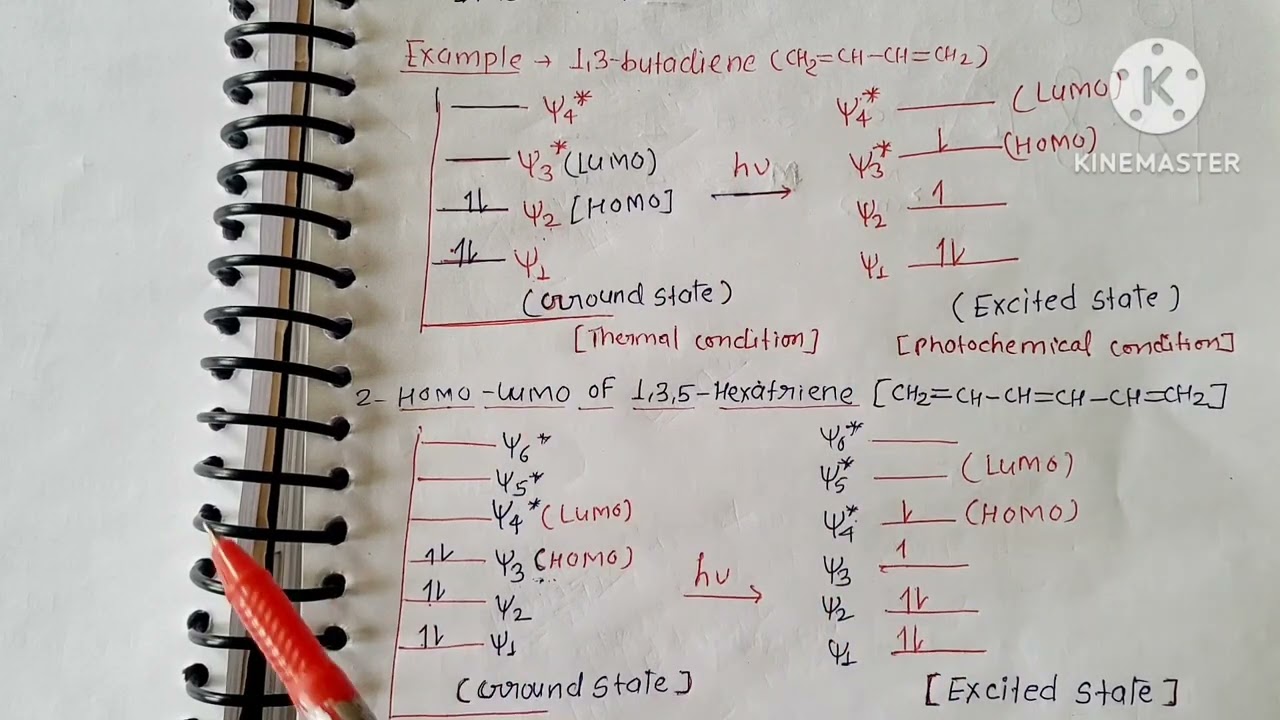 Example → 1,3-butadiene (CH2=CH-CH=CH2)
Ψ4*
Ψ3* (LUMO)
1L Ψ2 [HOMO]
1L Ψ1
(Ground state)
[Thermal condition]
hν
Ψ4* (LUMO)
Ψ3* L (HOMO)
Ψ2 1
Ψ1 1L
(Excited state)
[Photochemical condition]
K
KINEMASTER
2- HOMO-LUMO OF 1,3,5-Hexatriene [CH2=CH-CH=CH-CH=CH2]
Ψ6*
Ψ5*
Ψ4* (LUMO)
1L Ψ3 (HOMO)
1L Ψ2
1L Ψ1
(Ground state)
hν
Ψ6*
Ψ5* (LUMO)
Ψ4* L (HOMO)
Ψ3 1
Ψ2 1L
Ψ1 1L
[Excited state]